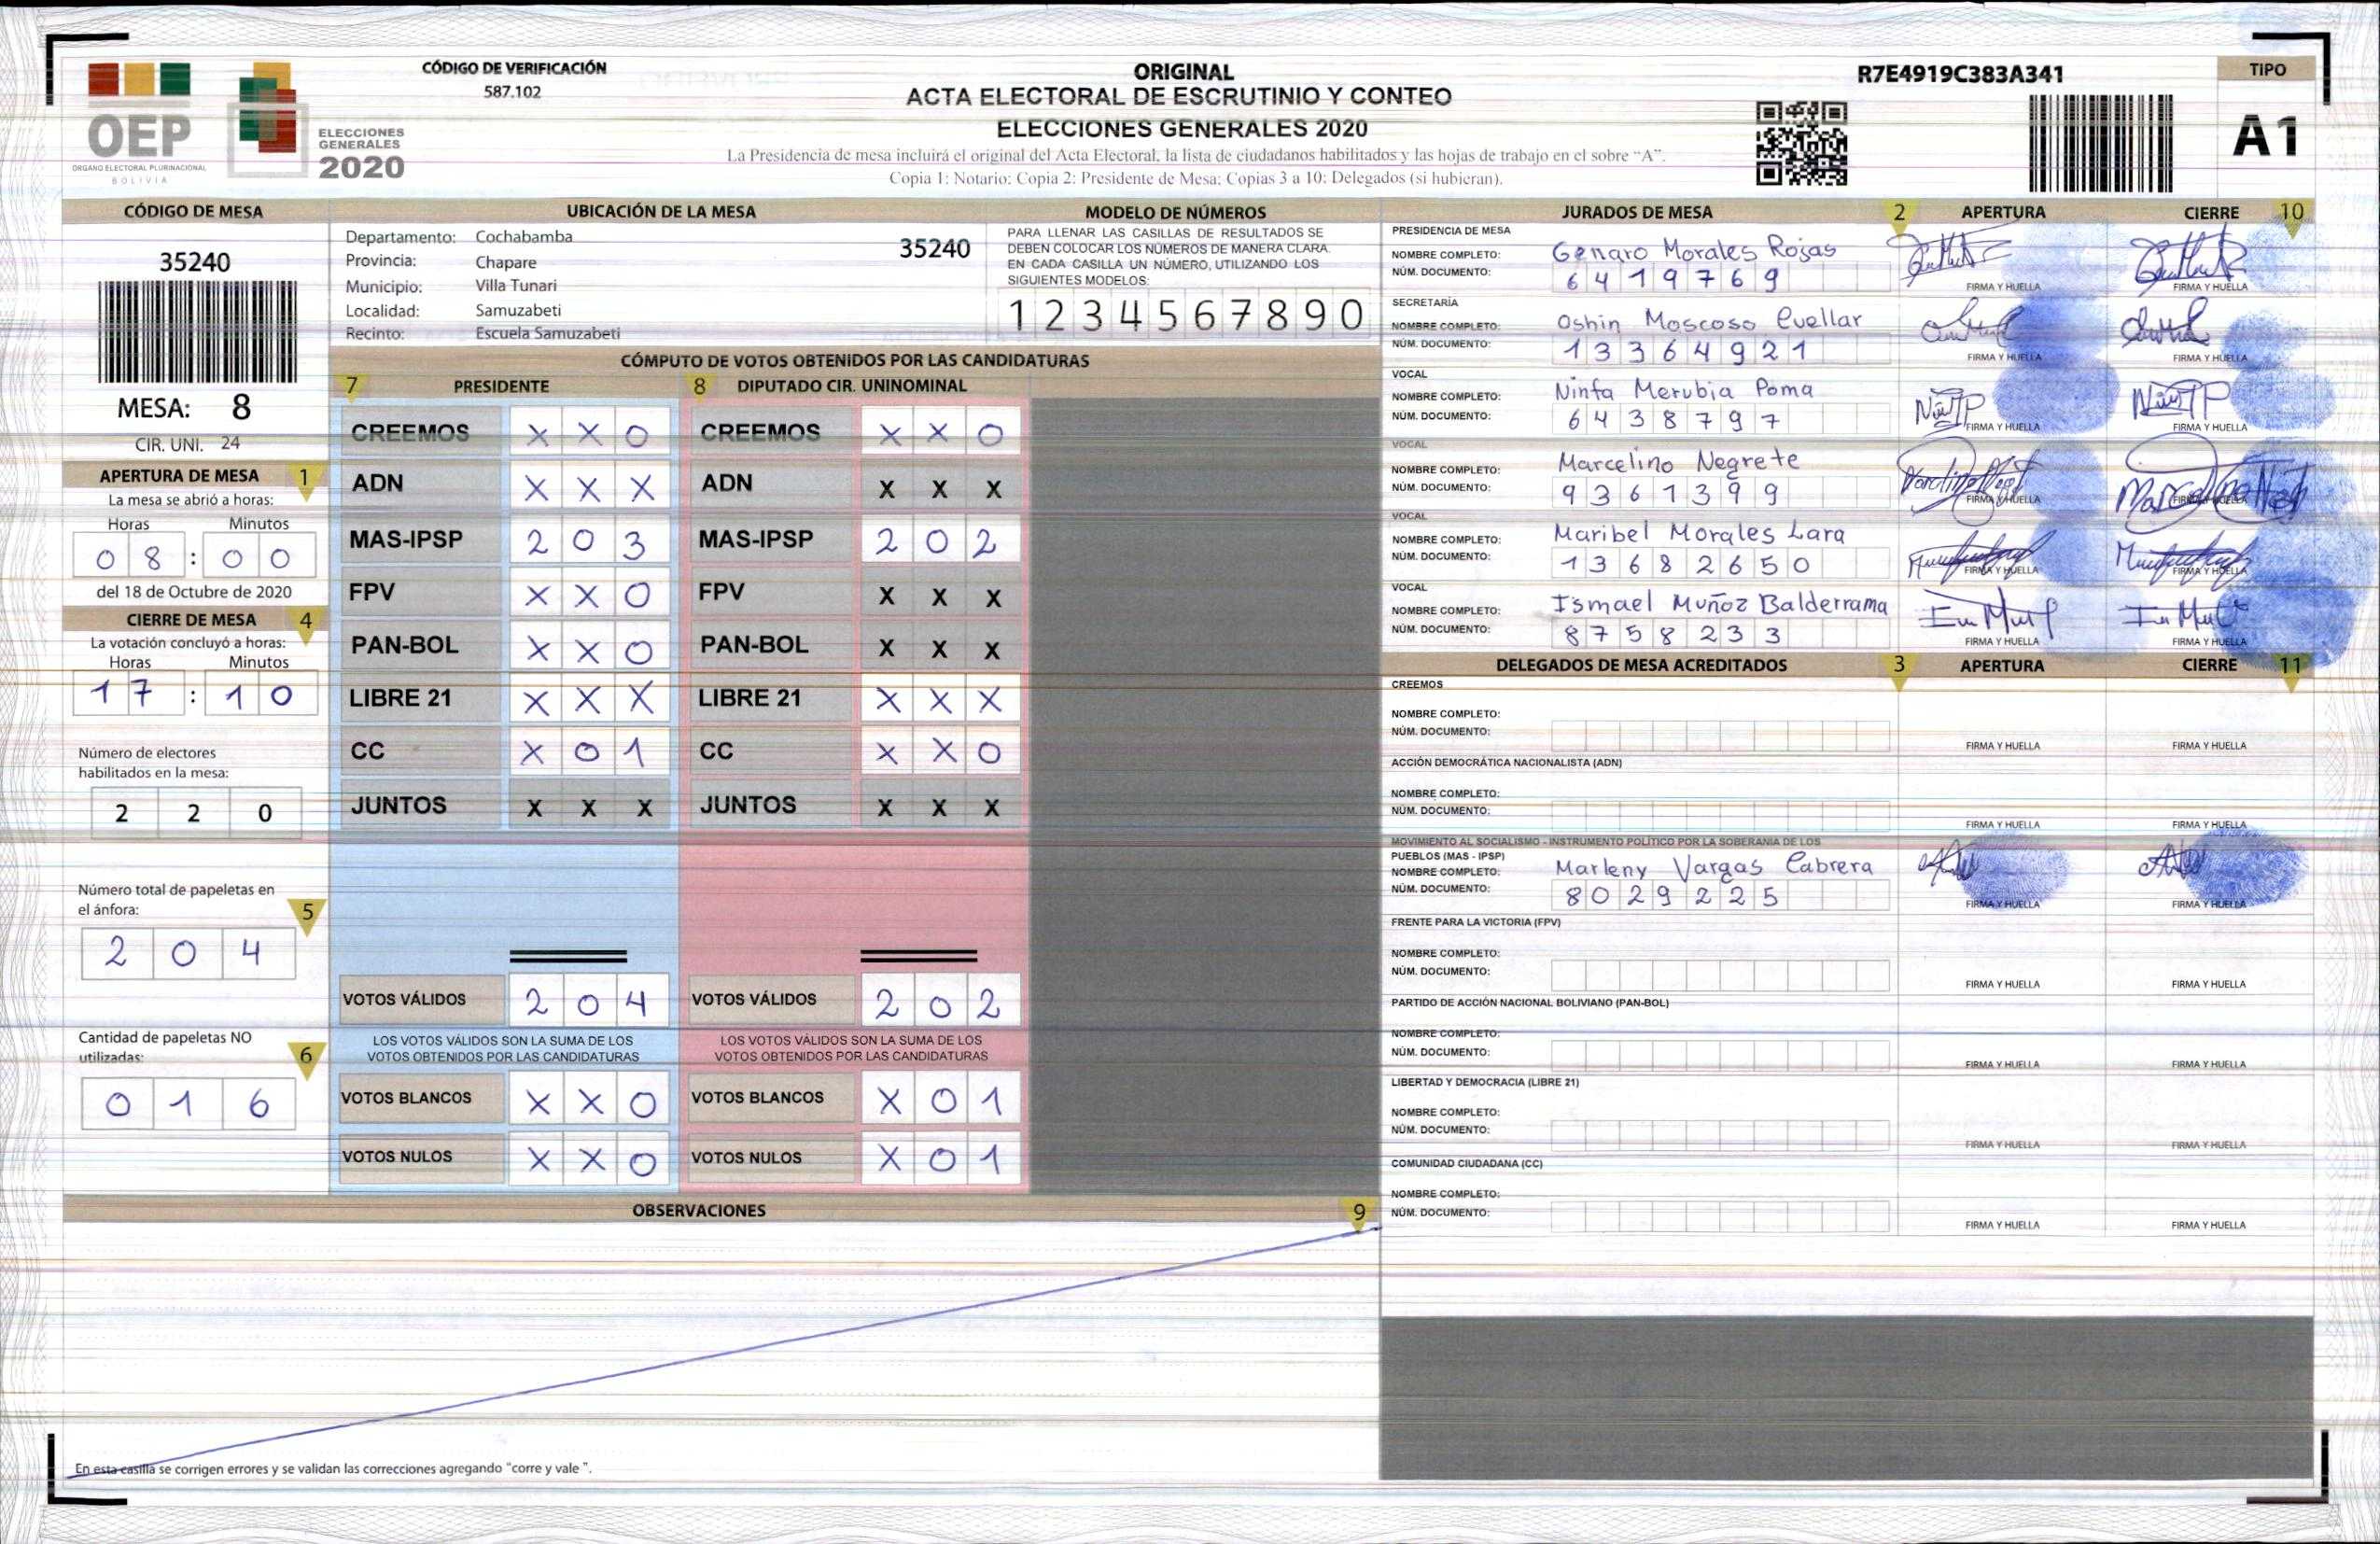 OEP
ÓRGANO ELECTORAL PLURINACIONAL
BOLIVIA
ELECCIONES
GENERALES
2020
CÓDIGO DE VERIFICACIÓN
587.102
ORIGINAL
ACTA ELECTORAL DE ESCRUTINIO Y CONTEO
ELECCIONES GENERALES 2020
La Presidencia de mesa incluirá el original del Acta Electoral, la lista de ciudadanos habilitados y las hojas de trabajo en el sobre "A".
Copia 1: Notario; Copia 2: Presidente de Mesa; Copias 3 a 10: Delegados (si hubieran).
R7E4919C383A341
TIPO
A1
CÓDIGO DE MESA
35240
MESA: 8
CIR. UNI. 24
APERTURA DE MESA 1
La mesa se abrió a horas:
Horas Minutos
08 : 00
del 18 de Octubre de 2020
CIERRE DE MESA 4
La votación concluyó a horas:
Horas Minutos
17 : 10
Número de electores
habilitados en la mesa:
2 2 0
Número total de papeletas en
el ánfora: 5
2 0 4
Cantidad de papeletas NO
utilizadas: 6
0 1 6
UBICACIÓN DE LA MESA
Departamento: Cochabamba
35240
Provincia: Chapare
Municipio: Villa Tunari
Localidad: Samuzabeti
Recinto: Escuela Samuzabeti
MODELO DE NÚMEROS
PARA LLENAR LAS CASILLAS DE RESULTADOS SE
DEBEN COLOCAR LOS NÚMEROS DE MANERA CLARA.
EN CADA CASILLA UN NÚMERO, UTILIZANDO LOS
SIGUIENTES MODELOS:
1 2 3 4 5 6 7 8 9 0
CÓMPUTO DE VOTOS OBTENIDOS POR LAS CANDIDATURAS
7 PRESIDENTE 8 DIPUTADO CIR. UNINOMINAL
CREEMOS X X 0 CREEMOS X X 0
ADN X X X ADN X X X
MAS-IPSP 2 0 3 MAS-IPSP 2 0 2
FPV X X 0 FPV X X X
PAN-BOL X X 0 PAN-BOL X X X
LIBRE 21 X X X LIBRE 21 X X X
CC X 0 1 CC X X 0
JUNTOS X X X JUNTOS X X X
VOTOS VÁLIDOS 2 0 4 VOTOS VÁLIDOS 2 0 2
LOS VOTOS VÁLIDOS SON LA SUMA DE LOS LOS VOTOS VÁLIDOS SON LA SUMA DE LOS
VOTOS OBTENIDOS POR LAS CANDIDATURAS VOTOS OBTENIDOS POR LAS CANDIDATURAS
VOTOS BLANCOS X X 0 VOTOS BLANCOS X 0 1
VOTOS NULOS X X 0 VOTOS NULOS X 0 1
OBSERVACIONES 9
En esta casilla se corrigen errores y se validan las correcciones agregando "corre y vale ".
JURADOS DE MESA 2 APERTURA CIERRE 10
PRESIDENCIA DE MESA
NOMBRE COMPLETO: Genaro Morales Rojas
NÚM. DOCUMENTO: 6419769
FIRMA Y HUELLA FIRMA Y HUELLA
SECRETARÍA
NOMBRE COMPLETO: Oshin Moscoso Cuellar
NÚM. DOCUMENTO: 13364921
FIRMA Y HUELLA FIRMA Y HUELLA
VOCAL
NOMBRE COMPLETO: Ninfa Merubia Poma
NÚM. DOCUMENTO: 6438797
FIRMA Y HUELLA FIRMA Y HUELLA
VOCAL
NOMBRE COMPLETO: Marcelino Negrete
NÚM. DOCUMENTO: 9361399
FIRMA Y HUELLA FIRMA Y HUELLA
VOCAL
NOMBRE COMPLETO: Maribel Morales Lara
NÚM. DOCUMENTO: 13682650
FIRMA Y HUELLA FIRMA Y HUELLA
VOCAL
NOMBRE COMPLETO: Ismael Muñoz Balderrama
NÚM. DOCUMENTO: 8758233
FIRMA Y HUELLA FIRMA Y HUELLA
DELEGADOS DE MESA ACREDITADOS 3 APERTURA CIERRE 11
CREEMOS
NOMBRE COMPLETO:
NÚM. DOCUMENTO:
FIRMA Y HUELLA FIRMA Y HUELLA
ACCIÓN DEMOCRÁTICA NACIONALISTA (ADN)
NOMBRE COMPLETO:
NÚM. DOCUMENTO:
FIRMA Y HUELLA FIRMA Y HUELLA
MOVIMIENTO AL SOCIALISMO - INSTRUMENTO POLÍTICO POR LA SOBERANIA DE LOS
PUEBLOS (MAS - IPSP)
NOMBRE COMPLETO: Marleny Vargas Cabrera
NÚM. DOCUMENTO: 8029225
FIRMA Y HUELLA FIRMA Y HUELLA
FRENTE PARA LA VICTORIA (FPV)
NOMBRE COMPLETO:
NÚM. DOCUMENTO:
FIRMA Y HUELLA FIRMA Y HUELLA
PARTIDO DE ACCIÓN NACIONAL BOLIVIANO (PAN-BOL)
NOMBRE COMPLETO:
NÚM. DOCUMENTO:
FIRMA Y HUELLA FIRMA Y HUELLA
LIBERTAD Y DEMOCRACIA (LIBRE 21)
NOMBRE COMPLETO:
NÚM. DOCUMENTO:
FIRMA Y HUELLA FIRMA Y HUELLA
COMUNIDAD CIUDADANA (CC)
NOMBRE COMPLETO:
NÚM. DOCUMENTO:
FIRMA Y HUELLA FIRMA Y HUELLA